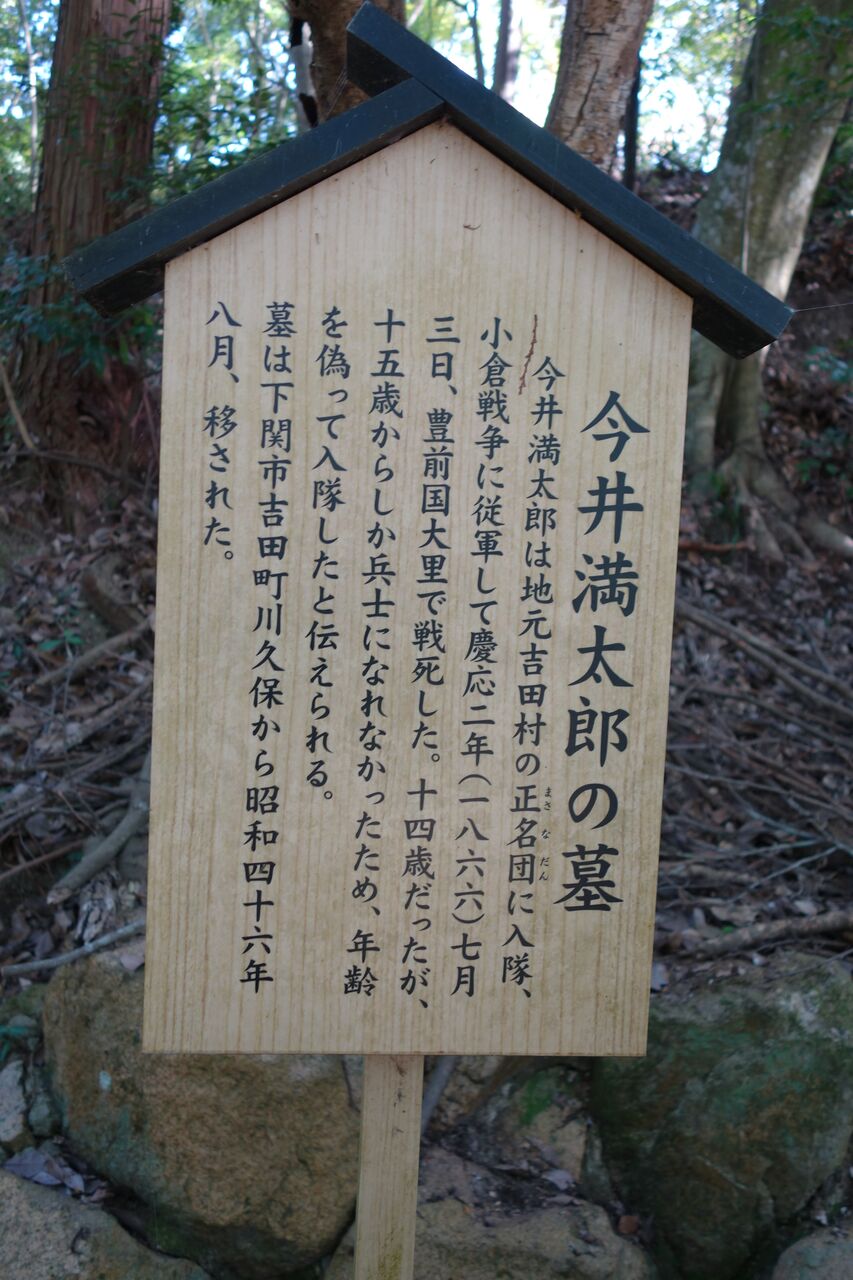 今井満太郎の墓
今井満太郎は地元吉田村の正名団に入隊、
まさなだん
小倉戦争に従軍して慶応二年（一八六六）七月
三日、豊前国大里で戦死した。十四歳だったが、
十五歳からしか兵士になれなかったため、年齢
を偽って入隊したと伝えられる。
墓は下関市吉田町川久保から昭和四十六年
八月、移された。